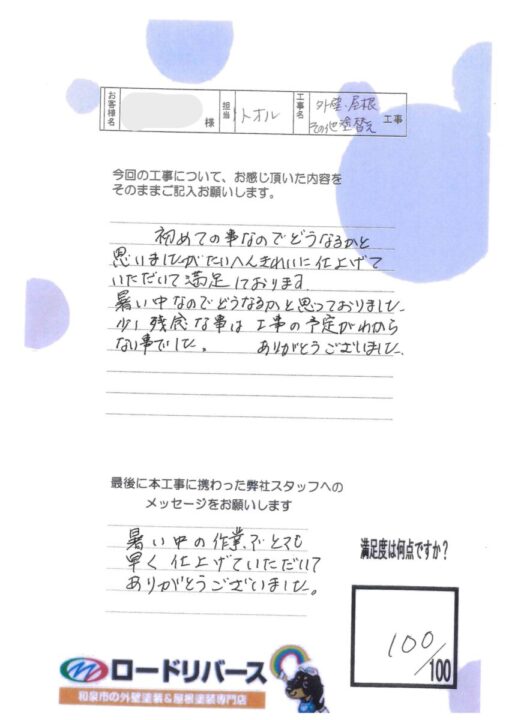 お客様名
様
担当
トオル
工事名
外壁、屋根
その他塗替え
工事
今回の工事について、お感じ頂いた内容を
そのままご記入お願いします。
初めての事なのでどうなるかと
思いましたがたいへんきれいに仕上げて
いただいて満足しております
暑い中なのでどうなるかと思っておりました
少し残念な事は工事の予定がわから
ない事でした。 ありがとうございました.
最後に本工事に携わった弊社スタッフへの
メッセージをお願いします
暑い中の作業でとても
早く仕上げていただいて
ありがとうございました。
満足度は何点ですか？
100/100
ロードリバース
和泉市の外壁塗装&屋根塗装専門店